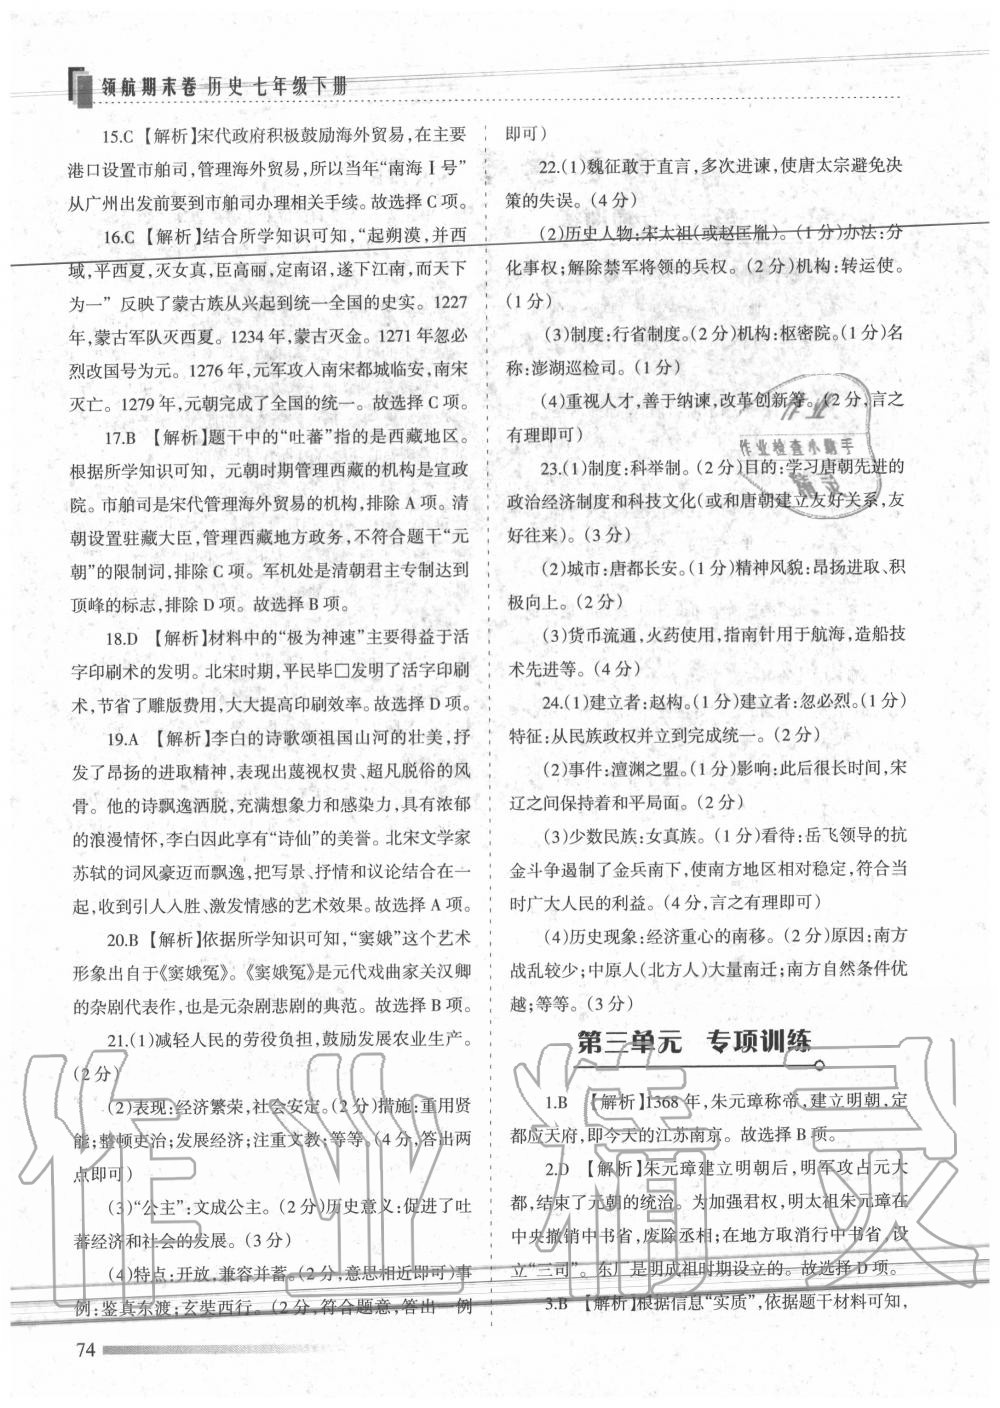 领航期末卷 历史 七年级下册
15.C 【解析】宋代政府积极鼓励海外贸易,在主要
港口设置市舶司,管理海外贸易,所以当年“南海Ⅰ号”
从广州出发前要到市舶司办理相关手续。故选择 C 项。
16.C 【解析】结合所学知识可知,“起朔漠,并西
域,平西夏,灭女真,臣高丽,定南诏,遂下江南,而天下
为一” 反映了蒙古族从兴起到统一全国的史实。1227
年,蒙古军队灭西夏。1234 年,蒙古灭金。1271 年忽必
烈改国号为元。1276 年,元军攻入南宋都城临安,南宋
灭亡。1279 年,元朝完成了全国的统一。故选择 C 项。
17.B 【解析】题干中的“吐蕃”指的是西藏地区。
根据所学知识可知, 元朝时期管理西藏的机构是宣政
院。市舶司是宋代管理海外贸易的机构,排除 A 项。清
朝设置驻藏大臣,管理西藏地方政务,不符合题干“元
朝”的限制词,排除 C 项。军机处是清朝君主专制达到
顶峰的标志,排除 D 项。故选择 B 项。
18.D 【解析】材料中的“极为神速”主要得益于活
字印刷术的发明。北宋时期,平民毕□发明了活字印刷
术,节省了雕版费用,大大提高印刷效率。故选择 D 项。
19.A 【解析】李白的诗歌颂祖国山河的壮美,抒
发了昂扬的进取精神,表现出蔑视权贵、超凡脱俗的风
骨。他的诗飘逸洒脱,充满想象力和感染力,具有浓郁
的浪漫情怀,李白因此享有“诗仙”的美誉。北宋文学家
苏轼的词风豪迈而飘逸,把写景、抒情和议论结合在一
起,收到引人入胜、激发情感的艺术效果。故选择 A 项。
20.B 【解析】依据所学知识可知,“窦娥”这个艺术
形象出自于《窦娥冤》。《窦娥冤》是元代戏曲家关汉卿
的杂剧代表作,也是元杂剧悲剧的典范。故选择 B 项。
21.(1)减轻人民的劳役负担,鼓励发展农业生产。
(2 分)
(2)表现:经济繁荣,社会安定。(2 分)措施:重用贤
能;整顿吏治;发展经济;注重文教;等等。(4 分,答出两
点即可)
(3)“公主”:文成公主。(2 分)历史意义:促进了吐
蕃经济和社会的发展。(3 分)
(4)特点:开放,兼容并蓄。(2 分,意思相近即可)事
例:鉴真东渡;玄奘西行。(2 分,符合题意,答出一例
即可)
22.(1)魏征敢于直言,多次进谏,使唐太宗避免决
策的失误。(4 分)
(2)历史人物:宋太祖(或赵匡胤)。(1 分)办法:分
化事权;解除禁军将领的兵权。(2 分)机构:转运使。
(1 分)
(3)制度:行省制度。(2 分)机构:枢密院。(1 分)名
称:澎湖巡检司。(1 分)
(4)重视人才,善于纳谏,改革创新等。(2 分,言之
有理即可)
23.(1)制度:科举制。(2 分)目的:学习唐朝先进的
政治经济制度和科技文化(或和唐朝建立友好关系,友
好往来)。(3 分)
(2)城市:唐都长安。(1 分)精神风貌:昂扬进取、积
极向上。(2 分)
(3)货币流通,火药使用,指南针用于航海,造船技
术先进等。(4 分)
24.(1)建立者:赵构。(1 分)建立者:忽必烈。(1 分)
特征:从民族政权并立到完成统一。(2 分)
(2)事件:澶渊之盟。(1 分)影响:此后很长时间,宋
辽之间保持着和平局面。(2 分)
(3)少数民族:女真族。(1 分)看待:岳飞领导的抗
金斗争遏制了金兵南下,使南方地区相对稳定,符合当
时广大人民的利益。(4 分,言之有理即可)
(4)历史现象:经济重心的南移。(2 分)原因:南方
战乱较少;中原人(北方人)大量南迁;南方自然条件优
越;等等。(3 分)
第三单元 专项训练
1.B 【解析】1368 年,朱元璋称帝,建立明朝,定
都应天府,即今天的江苏南京。故选择 B 项。
2.D 【解析】朱元璋建立明朝后,明军攻占元大
都,结束了元朝的统治。为加强君权,明太祖朱元璋在
中央撤销中书省,废除丞相;在地方取消行中书省,设
立“三司”。东厂是明成祖时期设立的。故选择 D 项。
3.B 【解析】根据信息“实质”,依据题干材料可知,
74
作业
作业检查小助手
精灵
作业精灵